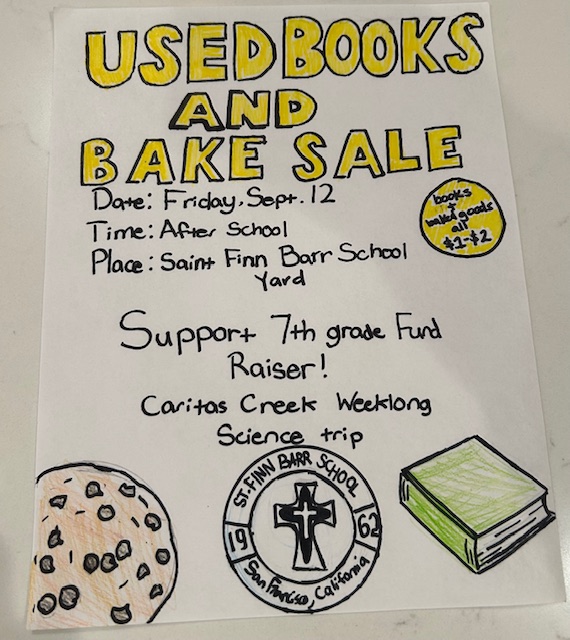 USED BOOKS
AND
BAKE SALE
Date: Friday, Sept. 12
Time: After School
Place: Saint Finn Barr School
Yard
books
+
baked goods
all
$1-$2
Support 7th grade Fund
Raiser!
Caritas Creek Weeklong
Science trip
ST. FINN BARR SCHOOL
19 62
San Francisco, California